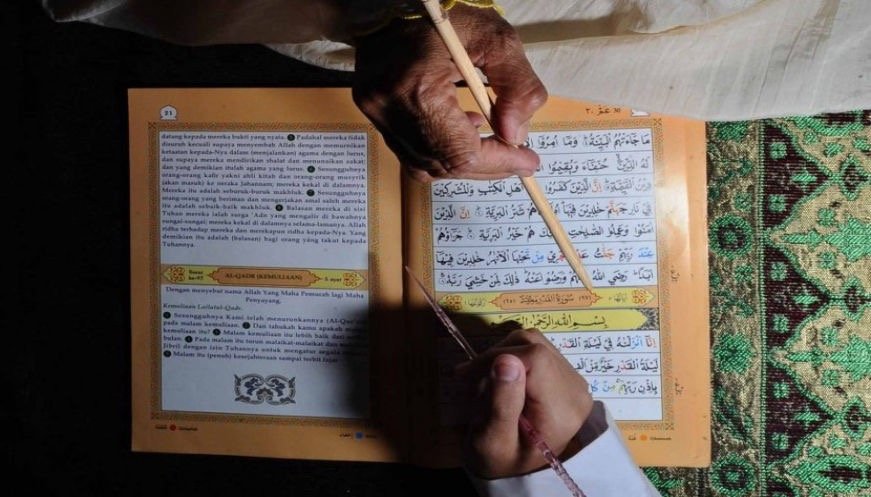 21
datang kepada mereka bukti yang nyata. 5 Padahal mereka tidak
disuruh kecuali supaya menyembah Allah dengan memurnikan
ketaatan kepada-Nya dalam (menjalankan) agama dengan lurus,
dan supaya mereka mendirikan shalat dan menunaikan zakat;
dan yang demikian itulah agama yang lurus. 6 Sesungguhnya
orang-orang kafir yakni ahli kitab dan orang-orang musyrik
(akan masuk) ke neraka Jahannam; mereka kekal di dalamnya.
Mereka itu adalah seburuk-buruk makhluk. 7 Sesungguhnya
orang-orang yang beriman dan mengerjakan amal saleh mereka
itu adalah sebaik-baik makhluk. 8 Balasan mereka di sisi
Tuhan mereka ialah surga 'Adn yang mengalir di bawahnya
sungai-sungai; mereka kekal di dalamnya selama-lamanya. Allah
ridha terhadap mereka dan merekapun ridha kepada-Nya. Yang
demikian itu adalah (balasan) bagi orang yang takut kepada
Tuhannya.
Surat ke-97 AL-QADR (KEMULIAAN) 5 ayat
Dengan menyebut nama Allah Yang Maha Pemurah lagi Maha
Penyayang.
Kemuliaan Lailatul-Qadr.
1 Sesungguhnya Kami telah menurunkannya (Al-Qur'an)
pada malam kemuliaan. 2 Dan tahukah kamu apakah malam
kemuliaan itu? 3 Malam kemuliaan itu lebih baik dari seribu
bulan. 4 Pada malam itu turun malaikat-malaikat dan malaikat
Jibril dengan izin Tuhannya untuk mengatur segala
5 Malam itu (penuh) kesejahteraan sampai terbit fajar.
عَمَّ ٣٠
مَا جَاءَتْهُمُ الْبَيِّنَةُ وَمَا أُمِرُوا
لَهُ الدِّينَ حُنَفَاءَ وَيُقِيمُوا
دِينُ الْقَيِّمَةِ إِنَّ الَّذِينَ كَفَرُوا مِنْ أَهْلِ الْكِتٰبِ وَالْمُشْرِكِينَ
فِي نَارِ جَهَنَّمَ خٰلِدِينَ فِيهَا أُولٰئِكَ هُمْ شَرُّ الْبَرِيَّةِ إِنَّ الَّذِينَ
اٰمَنُوا وَعَمِلُوا الصّٰلِحٰتِ أُولٰئِكَ هُمْ خَيْرُ الْبَرِيَّةِ جَزَاؤُهُمْ
عِنْدَ رَبِّهِمْ جَنّٰتُ عَدْنٍ تَجْرِي مِنْ تَحْتِهَا الْأَنْهٰرُ خٰلِدِينَ فِيهَا
أَبَدًا رَضِيَ اللّٰهُ عَنْهُمْ وَرَضُوا عَنْهُ ذٰلِكَ لِمَنْ خَشِيَ رَبَّهُ
(٩٧) سُورَةُ الْقَدْرِ مَكِّيَّةٌ (٢٥)
بِسْمِ اللّٰهِ الرَّحْمٰنِ الرَّحِيمِ
إِنَّا أَنْزَلْنٰهُ فِي لَيْلَةِ الْقَدْرِ
لَيْلَةُ الْقَدْرِ خَيْرٌ مِنْ أَلْفِ
بِإِذْنِ رَبِّهِمْ مِنْ كُلِّ